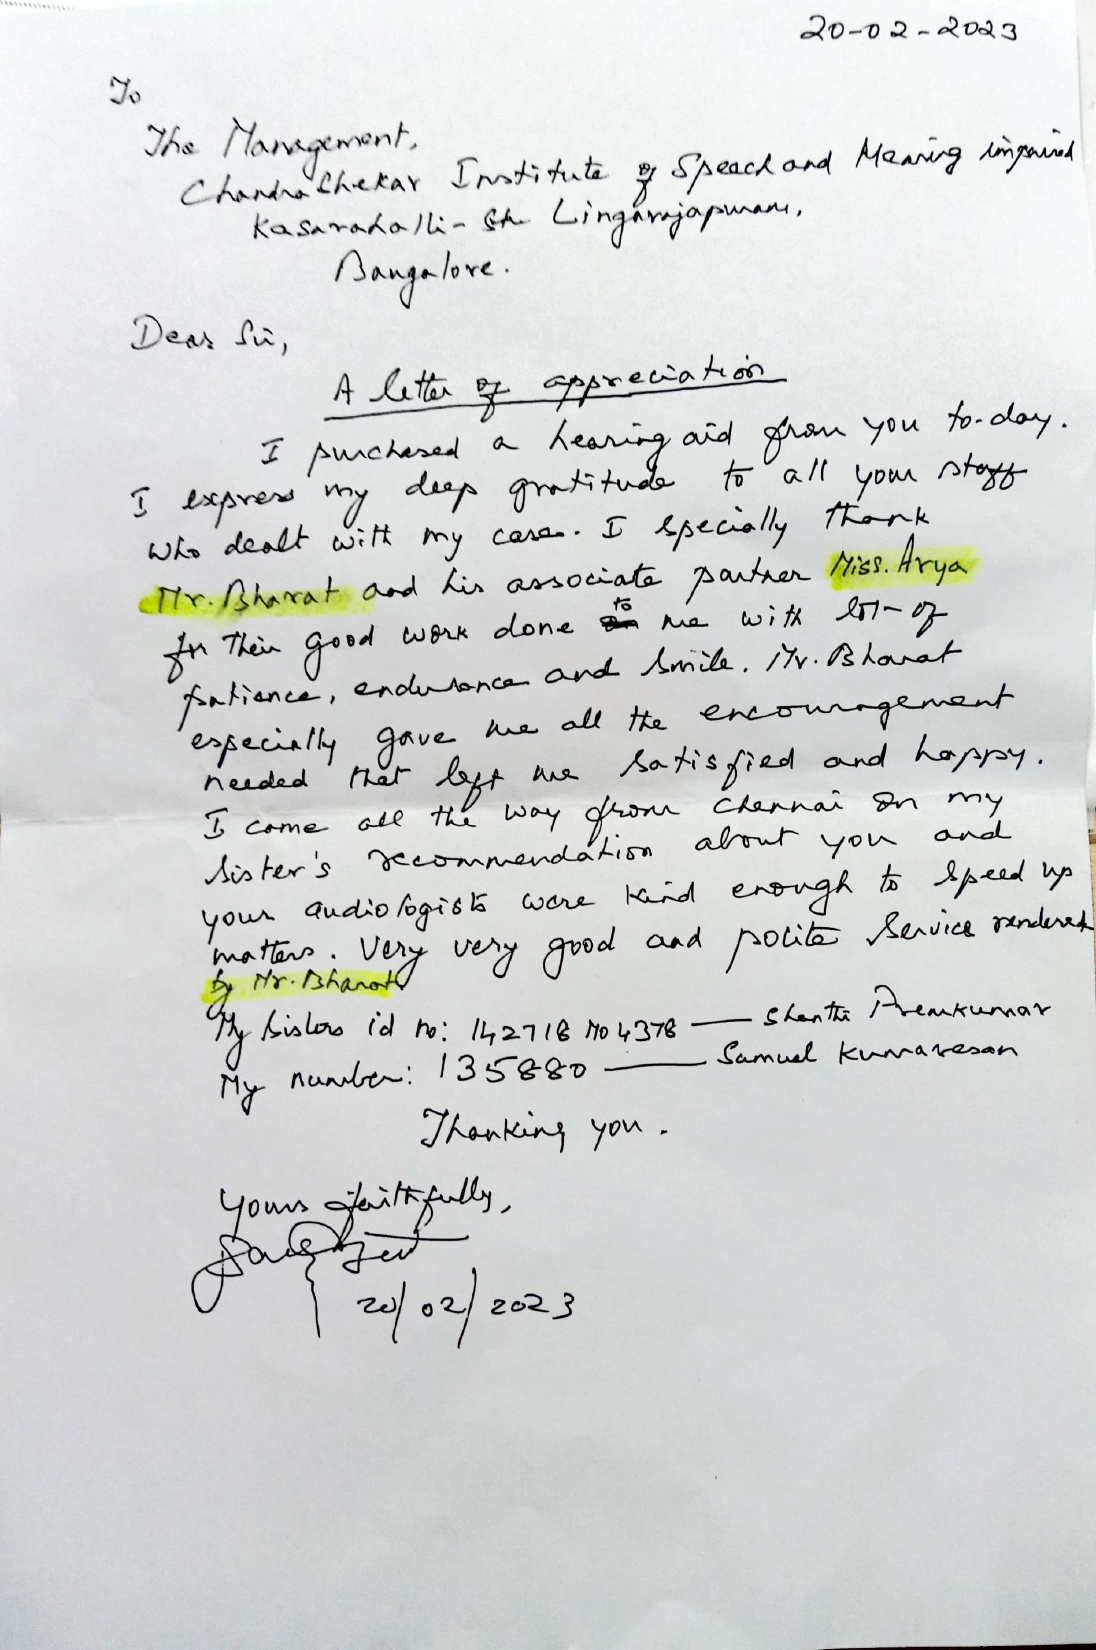 20-02-2023
To
The Management,
Chandrashekar Institute of Speech and Hearing impaired
Kasaradalli - Lingarajapuram,
Bangalore.
Dear Sir,
A letter of appreciation
I purchased a hearing aid from you to-day.
I express my deep gratitude to all your staff
who dealt with my case. I specially thank
Mr. Bharat and his associate partner Miss. Arya
for their good work done to me with lot of
patience, endurance and smile. Mr. Bharat
especially gave me all the encouragement
needed that left me satisfied and happy.
I came all the way from Chennai on my
sister's recommendation about you and
your audiologists were kind enough to speed up
matters. Very very good and polite service rendered
by Mr. Bharat
My sisters id no: 142718 No 4378 — Shanthi Premkumar
My number: 135880 — Samuel Kumaresan
Thanking you.
Yours faithfully,
20/02/2023